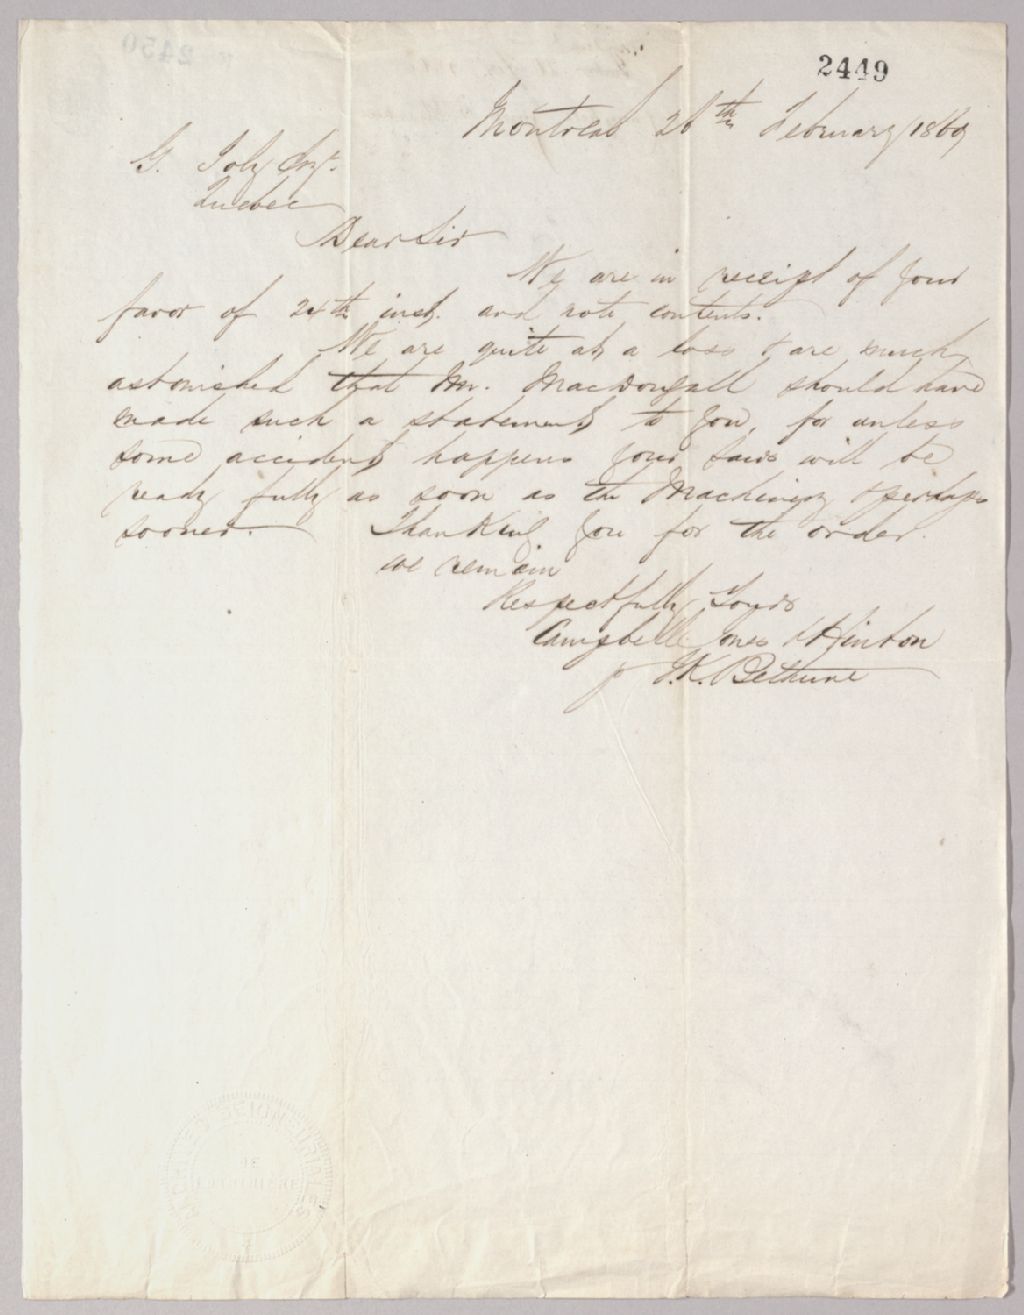 2449
Montreal 26th February 1869
G. Joly Esqr.
Quebec
Dear Sir
We are in receipt of your
favor of 24th inst. and note contents.
We are quite at a loss & are much
astonished that Mr. MacDougall should have
made such a statement to you, for unless
some accident happens your saws will be
ready fully as soon as the Machinery & perhaps
sooner. Thanking you for the order.
we remain
Respectfully Yours
Campbell Jones & Hinton
p J.K. Bethune
ARCHIVES SEIGNEURIALES
DE
LOTBINIÈRE